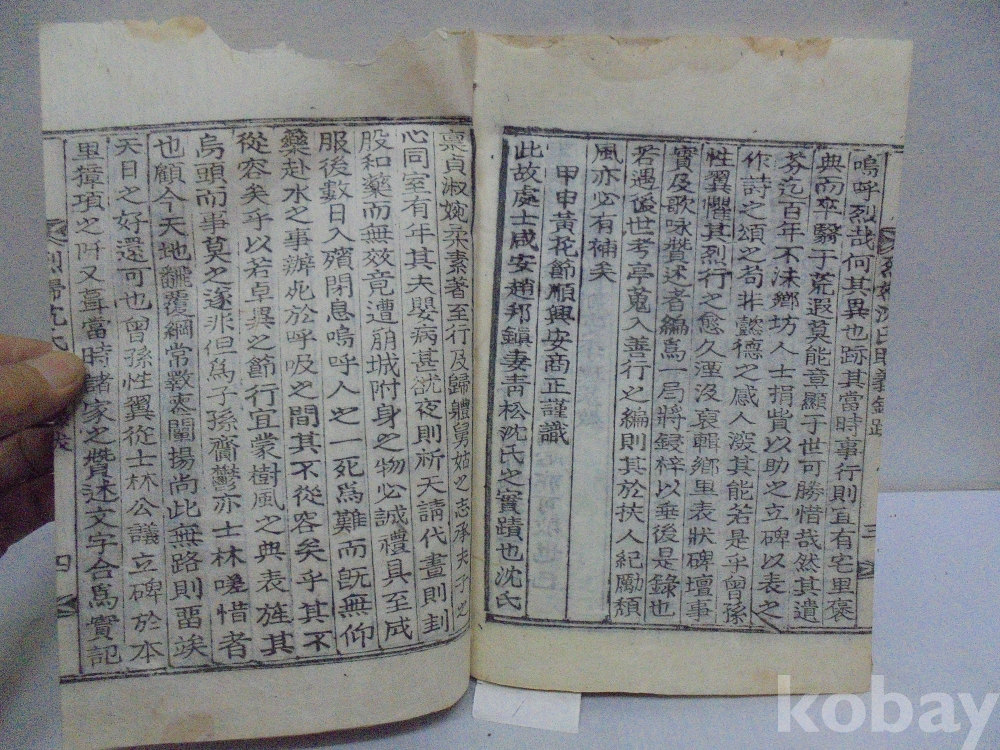 嗚呼烈哉何其異也跡其當時事行則宜有宅里褒
典而卒翳于荒遐莫能章顯于世可勝惜哉然其遺
芬迄百年不沬鄕坊人士捐貲以助之立碑以表之
作詩之頌之苟非懿德之感人深其能若是乎曾孫
性翼懼其烈行之愈久湮沒裒輯鄕里表狀碑壇事
實及歌咏贊述者編爲一局將鋟梓以垂後是錄也
若遇後世考亭蒐入善行之編則其於扶人紀勵頹
風亦必有補矣
甲申黃花節順興安商正謹識
此故處士咸安趙邦鎭妻靑松沈氏之實蹟也沈氏
稟貞淑婉柔素著至行及歸軆舅姑之志承夫子之
心同室有年其夫嬰病甚沈夜則祈天請代晝則刲
股和藥而無效竟遭崩城附身之物必誠禮具至成
服後數日入殯閉息嗚呼人之一死爲難而旣無仰
藥赴水之事辦死於呼吸之間其不從容矣乎其不
從容矣乎以若卓異之節行宜蒙樹風之典表旌其
烏頭而事莫之遂非但爲子孫齎鬱亦士林嗟惜者
也顧今天地飜覆綱常斁喪闡揚尙此無路則留竢
天日之好還可也曾孫性翼從士林公議立碑於本
里獐項之阡又葺當時諸家之贊述文字合爲實記
三
四
kobay